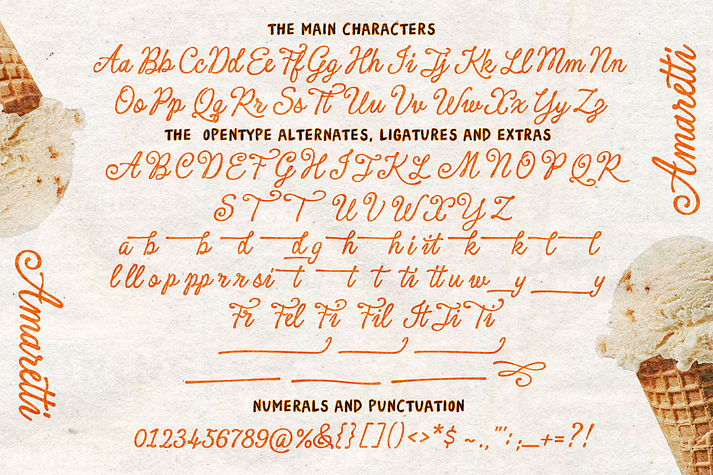 THE MAIN CHARACTERS
Aa Bb Cc Dd Ee Ff Gg Hh Ii Jj Kk Ll Mm Nn
Oo Pp Qq Rr Ss Tt Uu Vv Ww Xx Yy Zz
THE OPENTYPE ALTERNATES, LIGATURES AND EXTRAS
A B C D E F G H I J K L M N O P Q R
S T T U V W X Y Z
a b b d d g h h i it k k l l
l ll o p pp r r s si t t t ti tt u w y y
Fr Fel Fi Fil It Ji Ti
NUMERALS AND PUNCTUATION
0123456789@%&{}[]()<>*$ ~.,"':;_+=?!
Amaretti
Amaretti